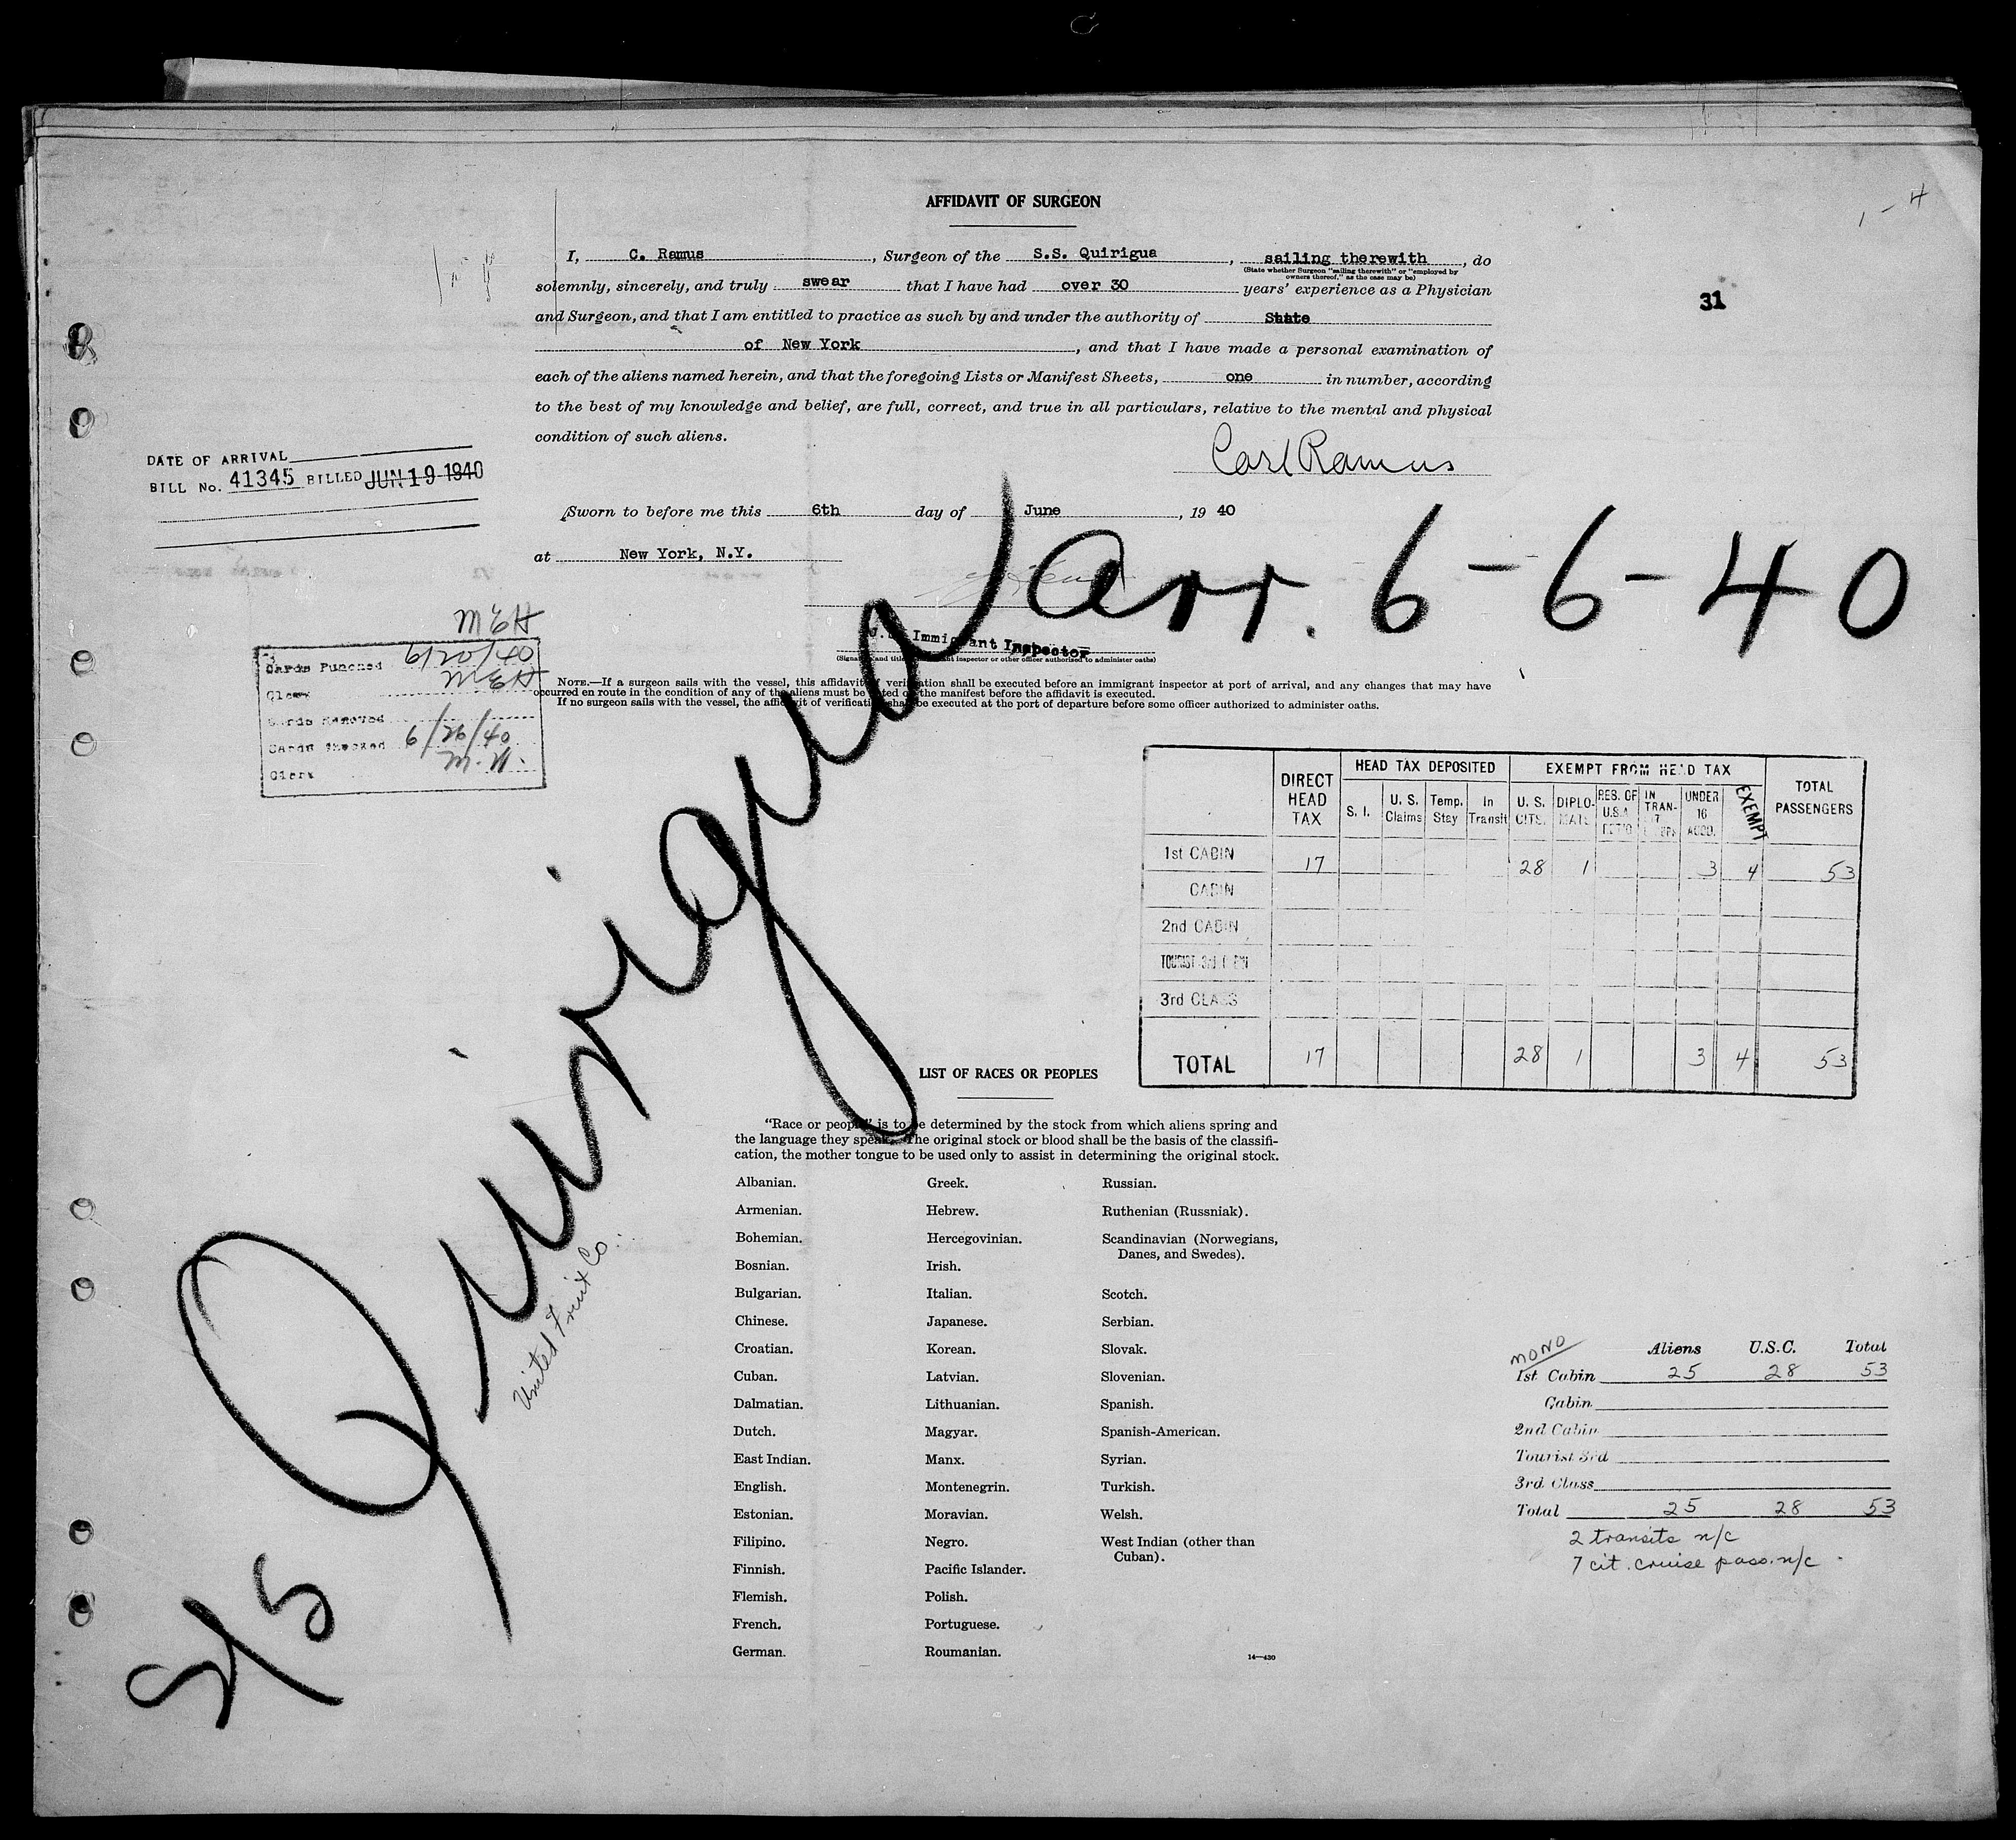 1 - 4
AFFIDAVIT OF SURGEON
I, C. Ramus, Surgeon of the S.S. Quirigua, sailing therewith, do
(State whether Surgeon "sailing therewith" or "employed by
owners thereof," as the case may be)
solemnly, sincerely, and truly swear that I have had over 30 years' experience as a Physician
and Surgeon, and that I am entitled to practice as such by and under the authority of State
of New York, and that I have made a personal examination of
each of the aliens named herein, and that the foregoing Lists or Manifest Sheets, one in number, according
to the best of my knowledge and belief, are full, correct, and true in all particulars, relative to the mental and physical
condition of such aliens.
31
Carl Ramus
DATE OF ARRIVAL
BILL No. 41345 BILLED JUN 19 1940
Sworn to before me this 6th day of June, 19 40
at New York, N.Y.
arr. 6-6-40
Immigrant Inspector
NOTE.—If a surgeon sails with the vessel, this affidavit of verification shall be executed before an immigrant inspector at port of arrival, and any changes that may have
occurred en route in the condition of any of the aliens must be noted on the manifest before the affidavit is executed.
If no surgeon sails with the vessel, the affidavit of verification shall be executed at the port of departure before some officer authorized to administer oaths.
MEH
Cards Punched 6/20/40
Clerk MEH
Cards Removed
Cards Checked 6/26/40
Clerk M.N.
S/S Quirigua
United Fruit Co.
DIRECT HEAD TAX
HEAD TAX DEPOSITED
EXEMPT FROM HEAD TAX
TOTAL PASSENGERS
S. I. U. S. Claims Temp. Stay In Transit U. S. CITS. DIPLOMATS RES. OF U.S.A. RET'G IN TRAN- UNDER 16 ACCD. EXEMPT
1st CABIN 17 28 1 3 4 53
CABIN
2nd CABIN
TOURIST 3rd CABIN
3rd CLASS
TOTAL 17 28 1 3 4 53
LIST OF RACES OR PEOPLES
"Race or people" is to be determined by the stock from which aliens spring and
the language they speak. The original stock or blood shall be the basis of the classifi-
cation, the mother tongue to be used only to assist in determining the original stock.
Albanian. Greek. Russian.
Armenian. Hebrew. Ruthenian (Russniak).
Bohemian. Hercegovinian. Scandinavian (Norwegians,
Danes, and Swedes).
Bosnian. Irish.
Bulgarian. Italian. Scotch.
Chinese. Japanese. Serbian.
Croatian. Korean. Slovak.
Cuban. Latvian. Slovenian.
Dalmatian. Lithuanian. Spanish.
Dutch. Magyar. Spanish-American.
East Indian. Manx. Syrian.
English. Montenegrin. Turkish.
Estonian. Moravian. Welsh.
Filipino. Negro. West Indian (other than
Cuban).
Finnish. Pacific Islander.
Flemish. Polish.
French. Portuguese.
German. Roumanian.
14—430
MONO
Aliens U.S.C. Total
1st Cabin 25 28 53
Cabin
2nd Cabin
Tourist 3rd
3rd Class
Total 25 28 53
2 transits n/c
7 cit. cruise pass. n/c